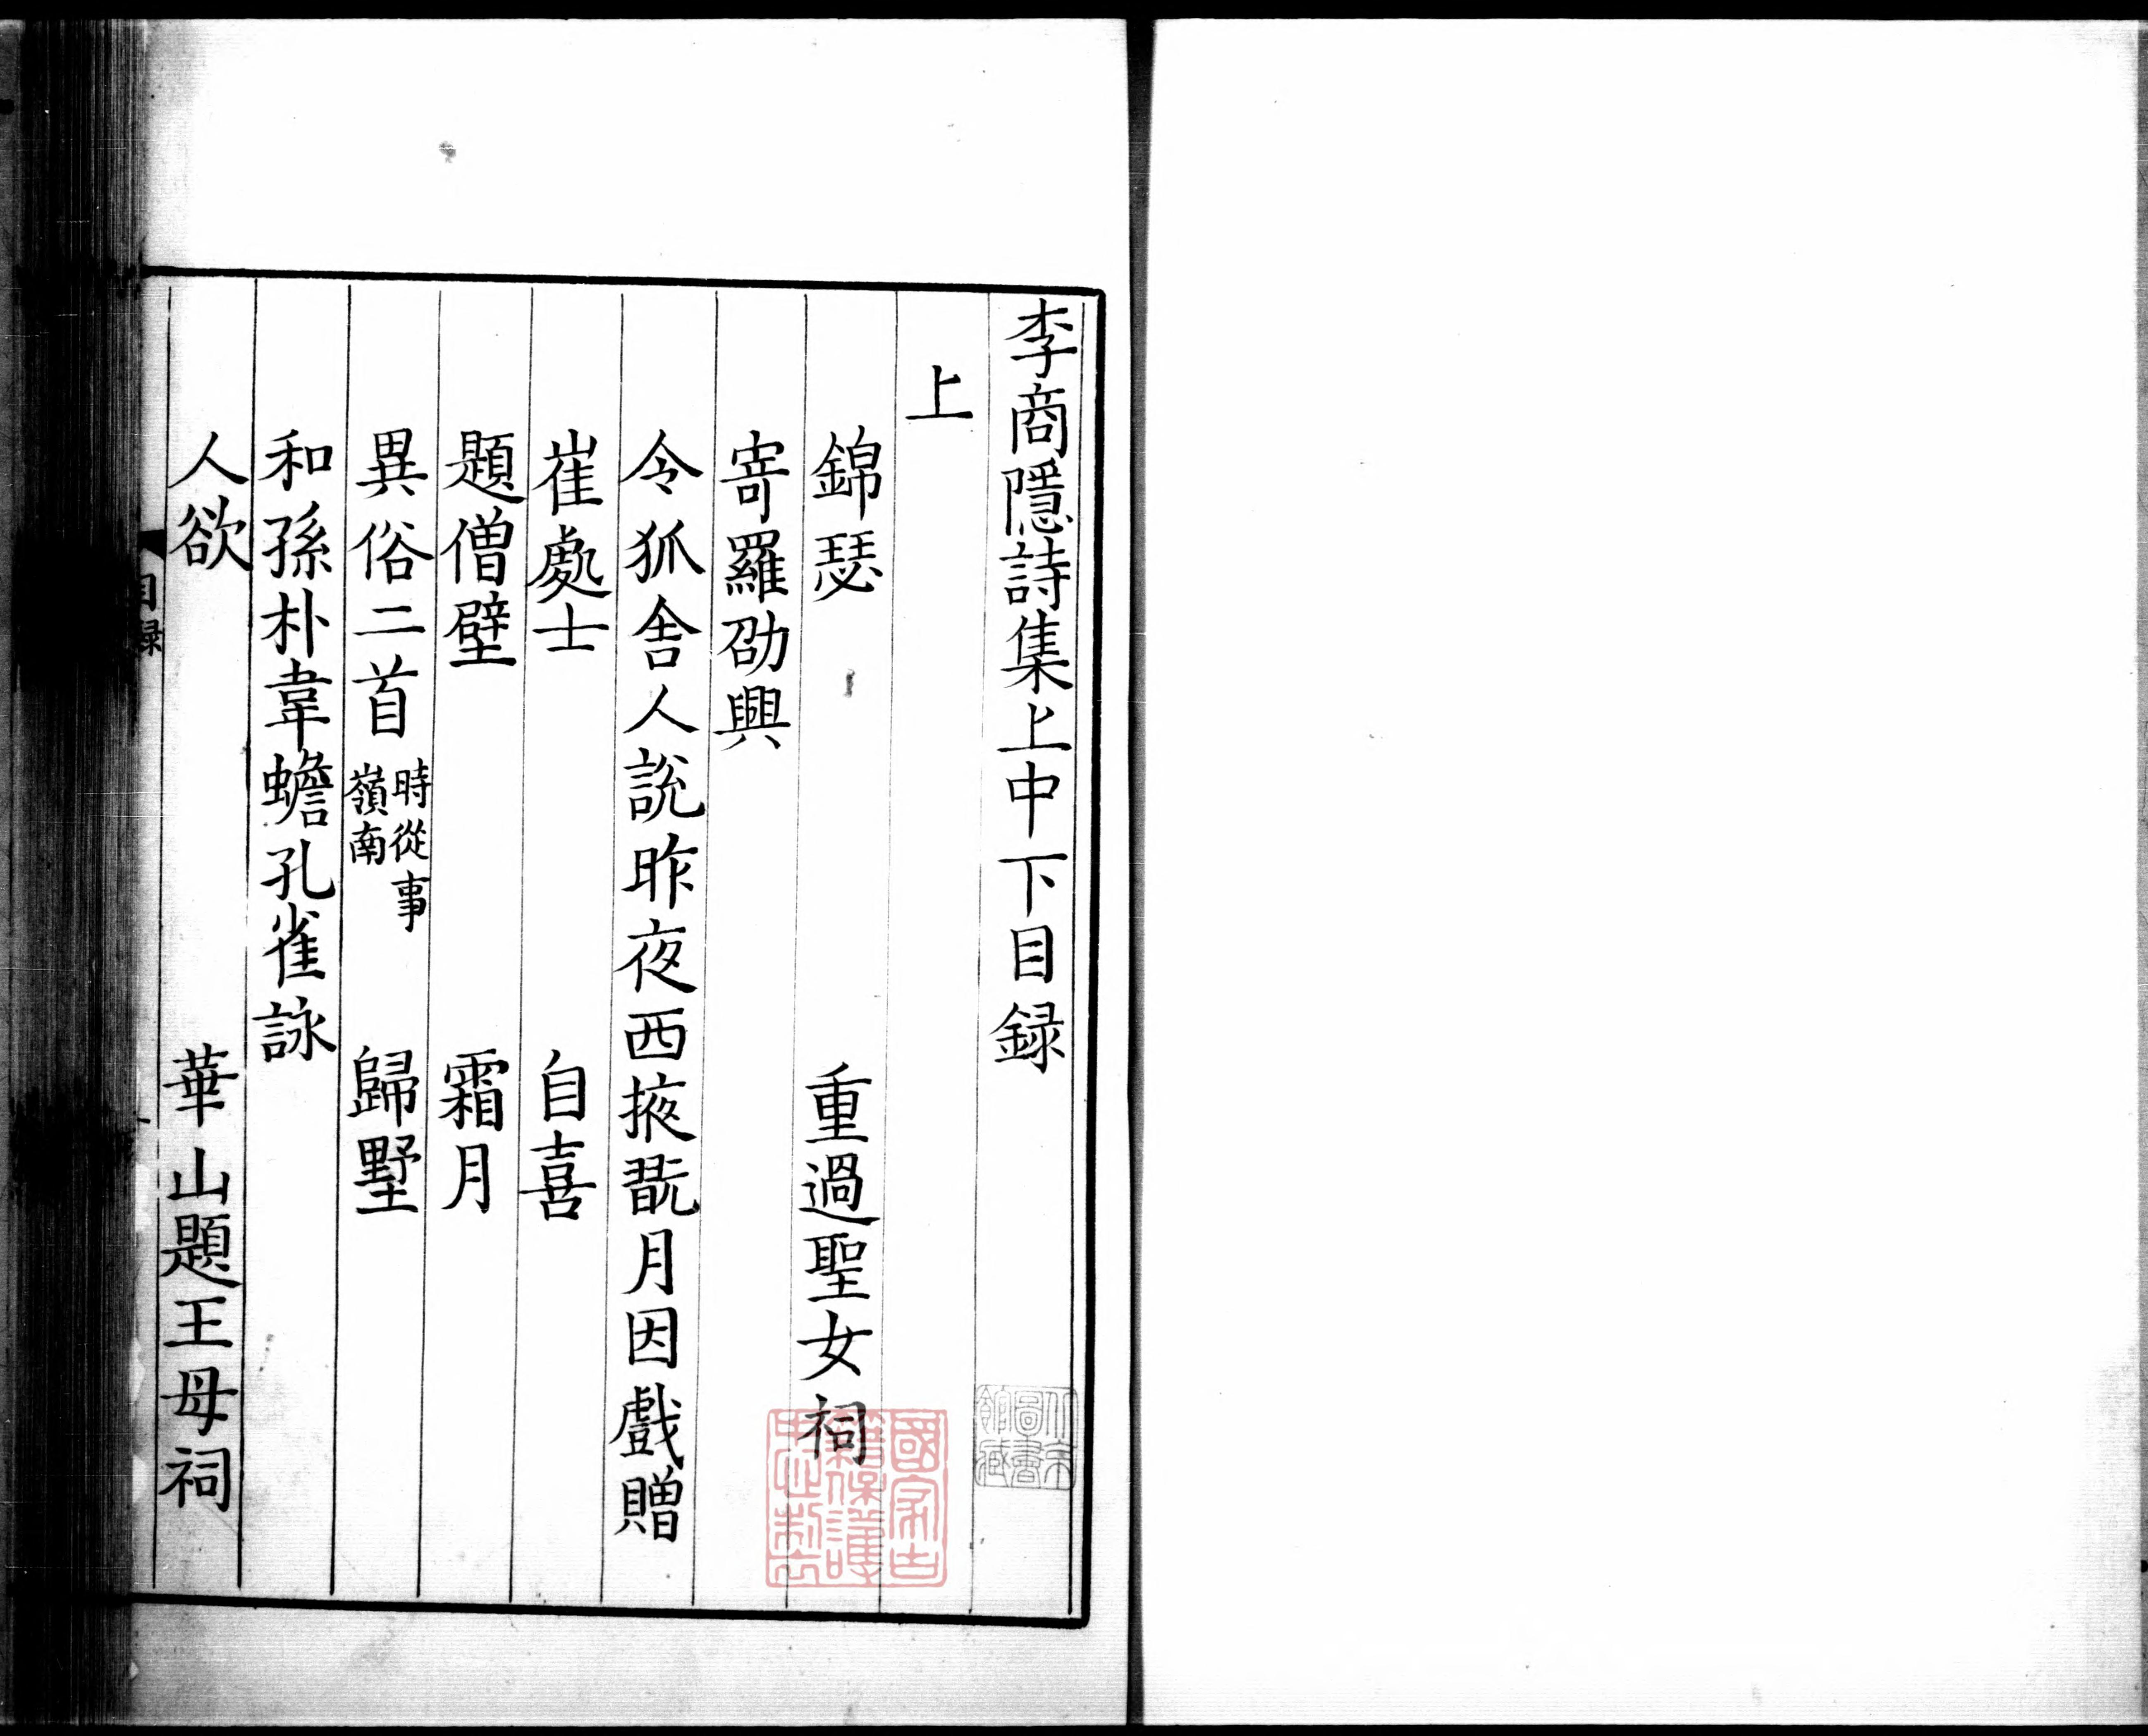 李商隱詩集上中下目録
上
錦瑟　重過聖女祠
寄羅劭興
令狐舍人說昨夜西掖翫月因戲贈
崔處士　自喜
題僧壁　霜月
異俗二首 時從事嶺南　歸墅
和孫朴韋蟾孔雀詠
人欲　華山題王母祠
目録
國家古籍保護
北京圖書館藏